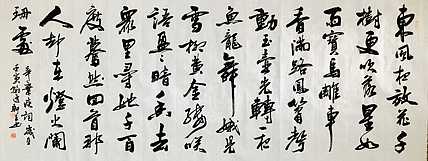 東風夜放花千
樹更吹落星如
雨寶馬雕車
香滿路鳳簫聲
動玉壺光轉一夜
魚龍舞蛾兒
雪柳黃金縷笑
語盈盈暗香去
眾里尋他千百
度驀然回首那
人卻在燈火闌
珊處
辛棄疾詞